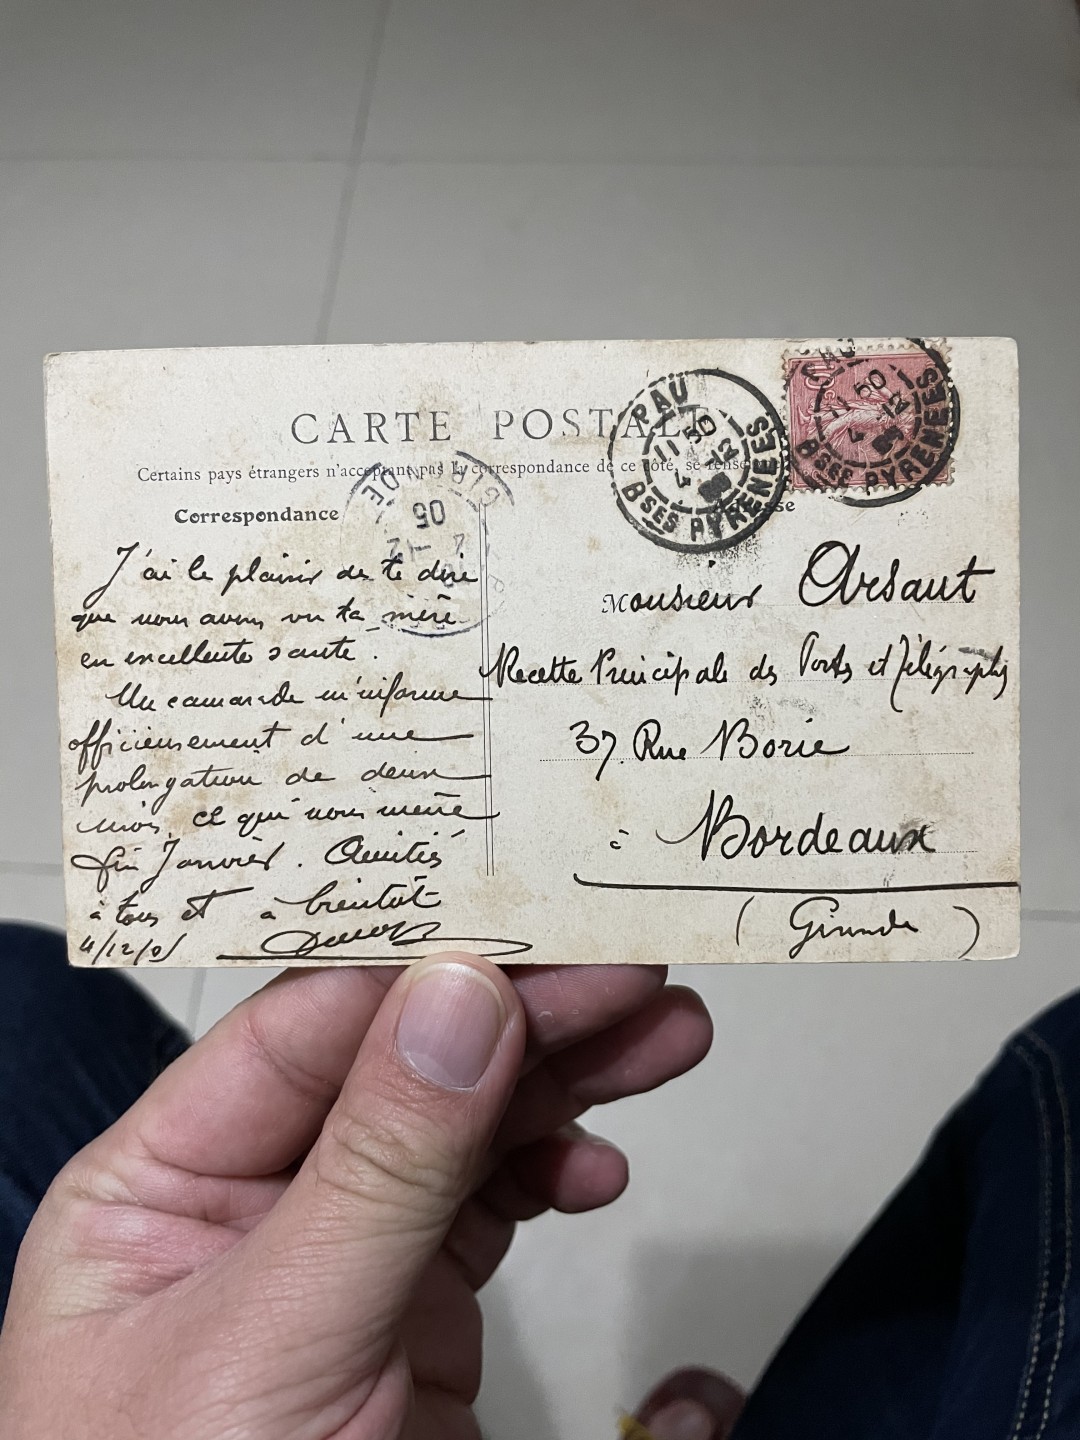 CARTE POSTALE
Certains pays étrangers n'acceptant pas la correspondance de ce côté, se rense
Correspondance
J'ai le plaisir de te dire
que nous avons vu ta mère
en excellente santé.
Un camarade m'informe
officieusement d'une
prolongation de deux
mois, ce qui nous mène
fin Janvier. Amitiés
à tous et à bientôt
4/12/05
GIRONDE
05
PAU
11 50
4 -12
Bses PYRENEES
PAU
11 50
4 -12
Bses PYRENEES
10c
Monsieur Arsaut
Recette Principale des Postes et Télégraphes
37. Rue Borie
à Bordeaux
(Gironde)